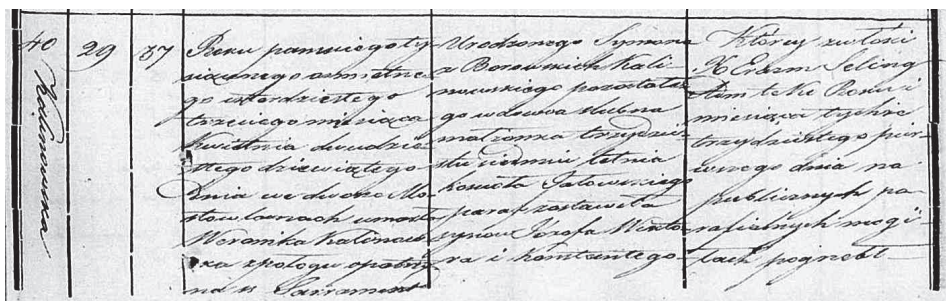 40 Kalinowska
29
37
Roku pamiętego ty-
siącznego osmsetne-
go czterdziestego
trzeciego miesiąca
Kwietnia dwudzie-
stego dziewiątego
Dnia we dworze Mo-
stowlanach umarła
Weranika Kalinow-
ska z pologu opatrzo-
na ss Sacrament
Urodzonego Symona
z Borowskich Kali-
nowskiego pozostała
go wdowca slubna
małżonka trzydzie-
stu siedmiu letnia
kościoła Jałowskiego
para: zostawiła
synów Józefa Wikto-
ra i Konstantego
Którey zwłoki
X Erazm Jeling
tim teko Roku i
miesiąca tychże
trzydziestego pier-
wszego dnia na
publicznych pa-
rafialnych mogi-
łach pogrzebł